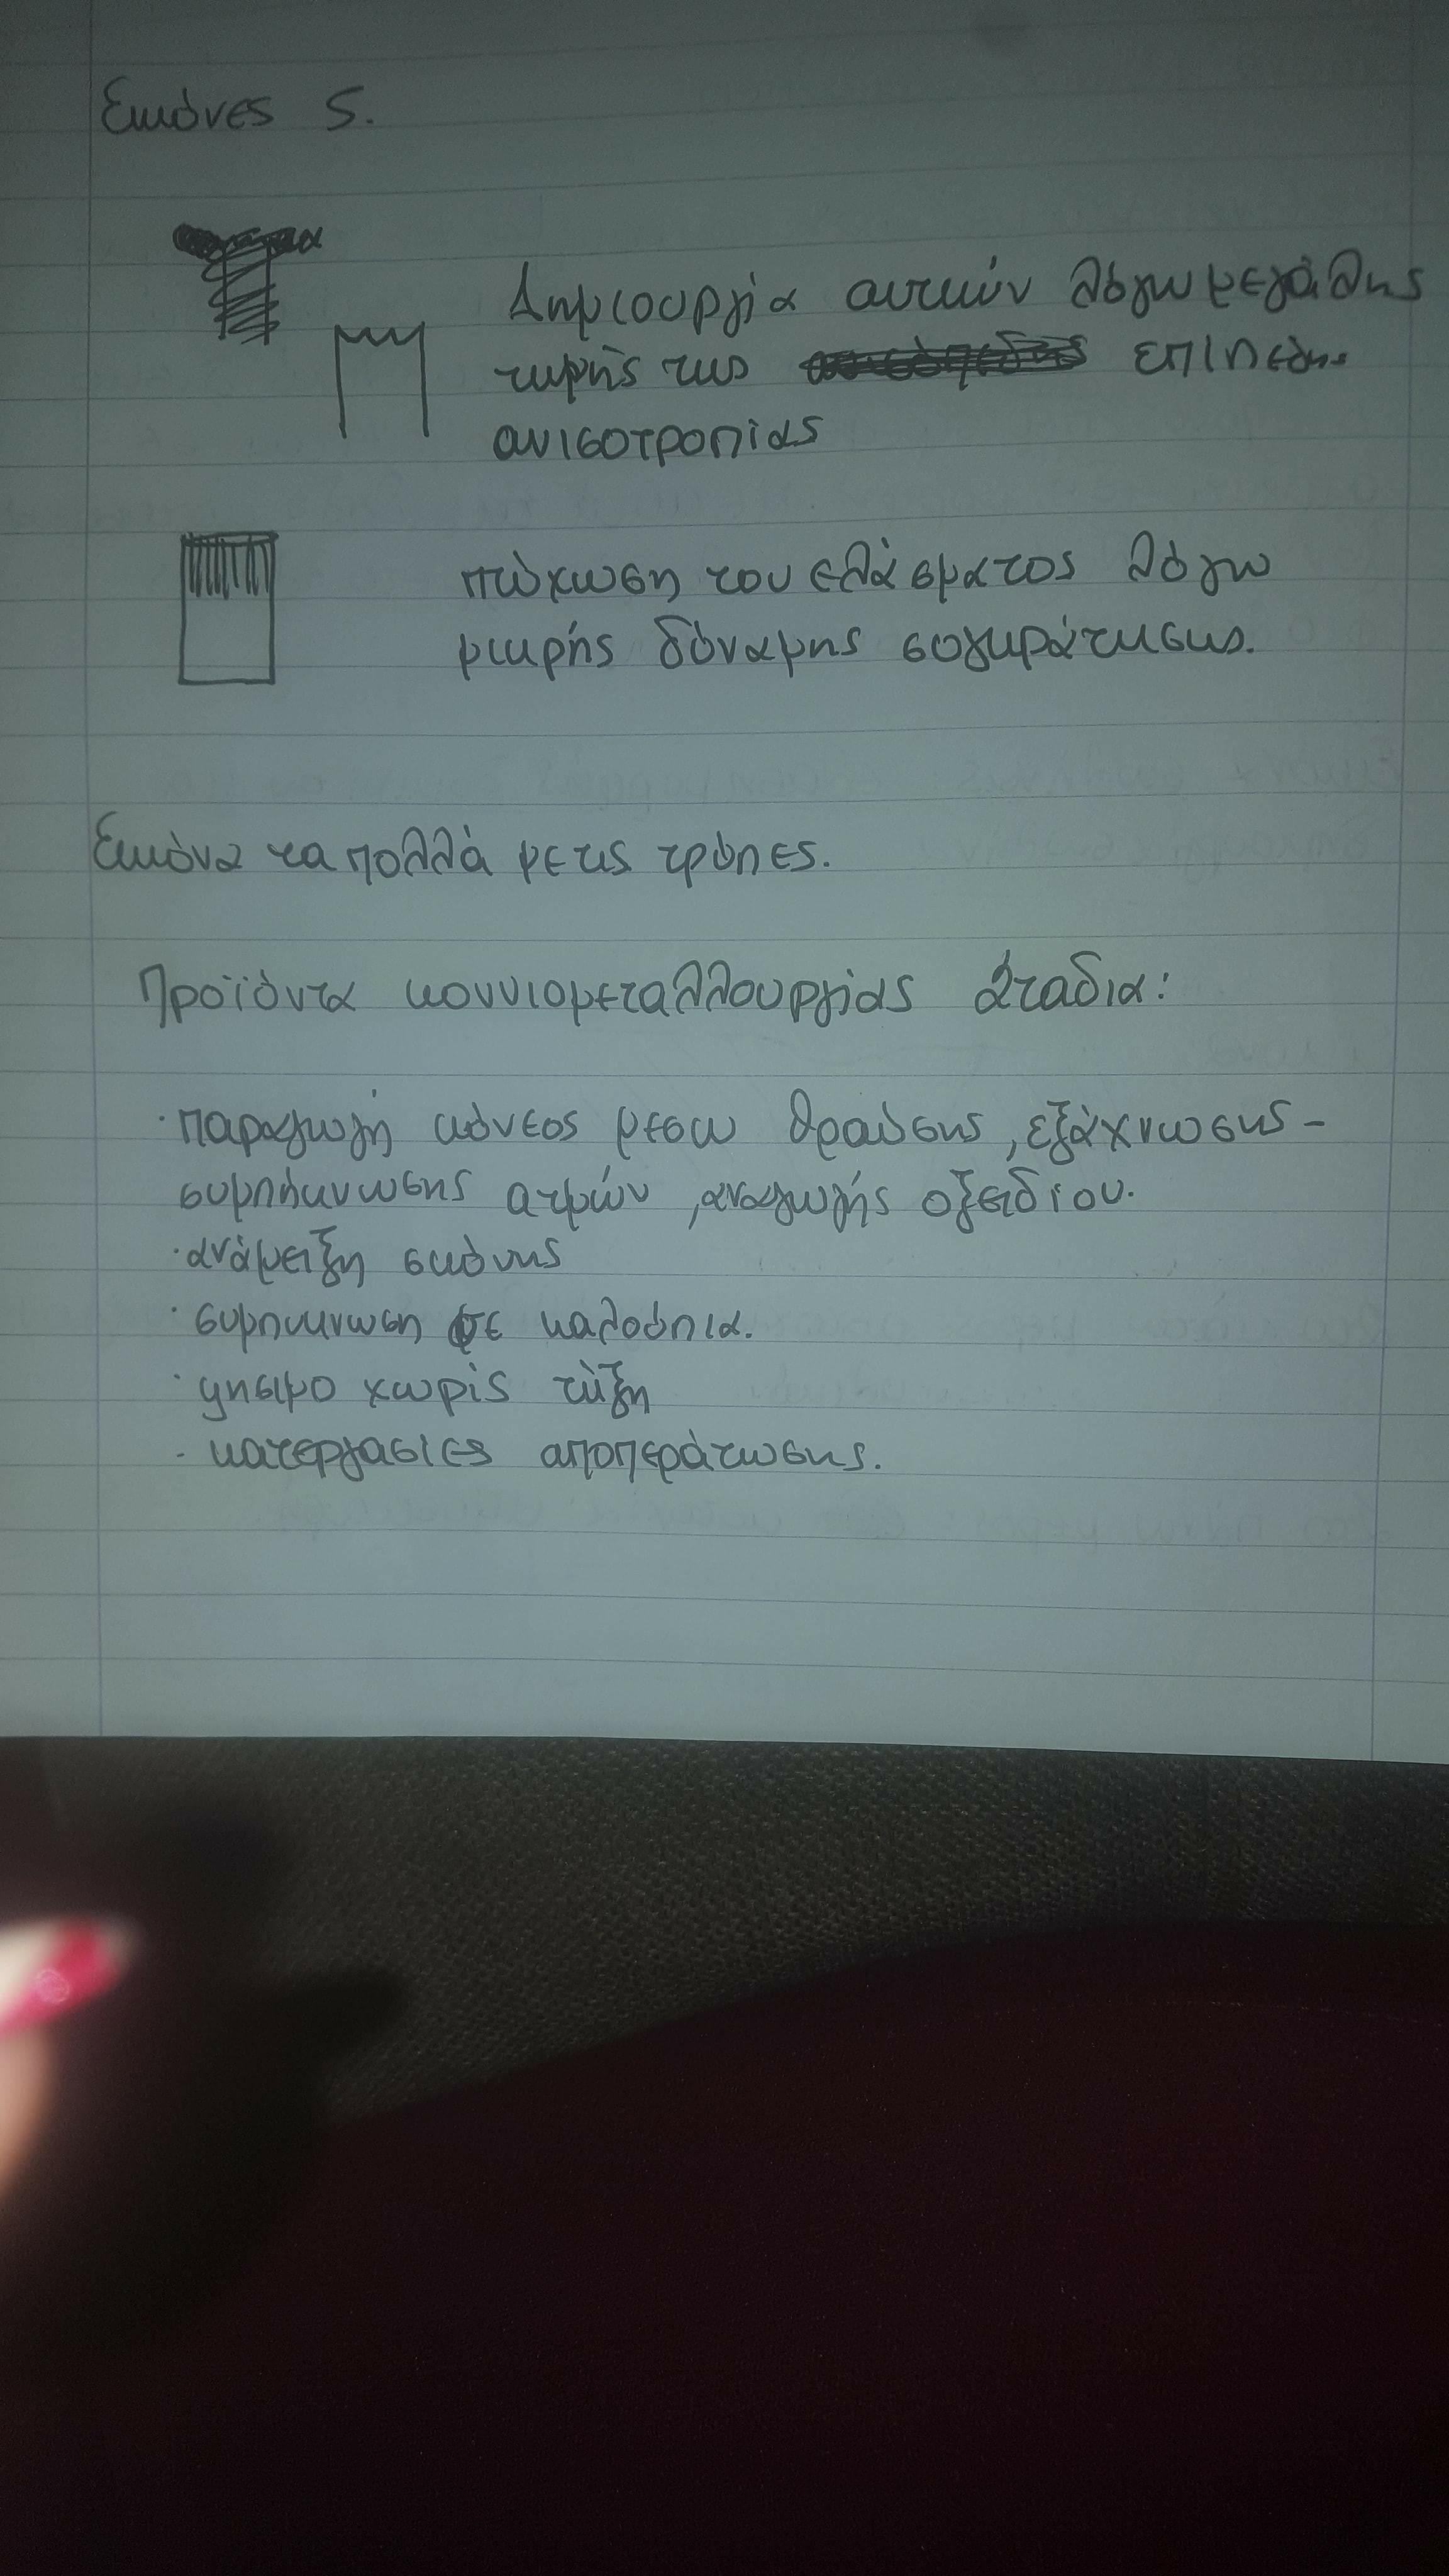 Εικόνες 5.
Δημιουργία αυτιών λόγω μεγάλης
τιμής της επίπεδης
ανισοτροπίας
πτύχωση του ελάσματος λόγω
μικρής δύναμης συγκράτησης.
Εικόνα τα πολλά με τις τρύπες.
Προϊόντα κονιομεταλλουργίας Στάδια:
· παραγωγή κόνεος μεσω θραύσης, εξάχνωσης -
συμπύκνωσης ατμών, αναγωγής οξειδίου.
· ανάμειξη σκόνης
· συμπυκνωση σε καλούπια.
· ψησιμο χωρίς τήξη
- κατεργασίες αποπεράτωσης.